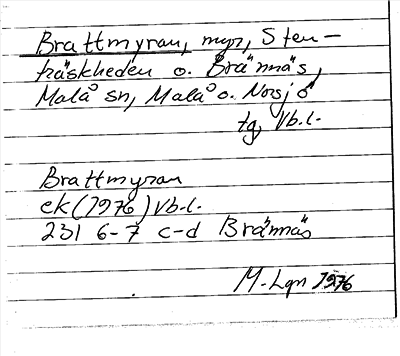 Brattmyran, myr, Sten-
träskheden o. Brännäs,
Malå sn, Malå o. Norsjö
tg, Vb.l.
Brattmyran
ek (1976) Vb.l.
231 6-7 c-d Brännäs
M. Lgn 1976